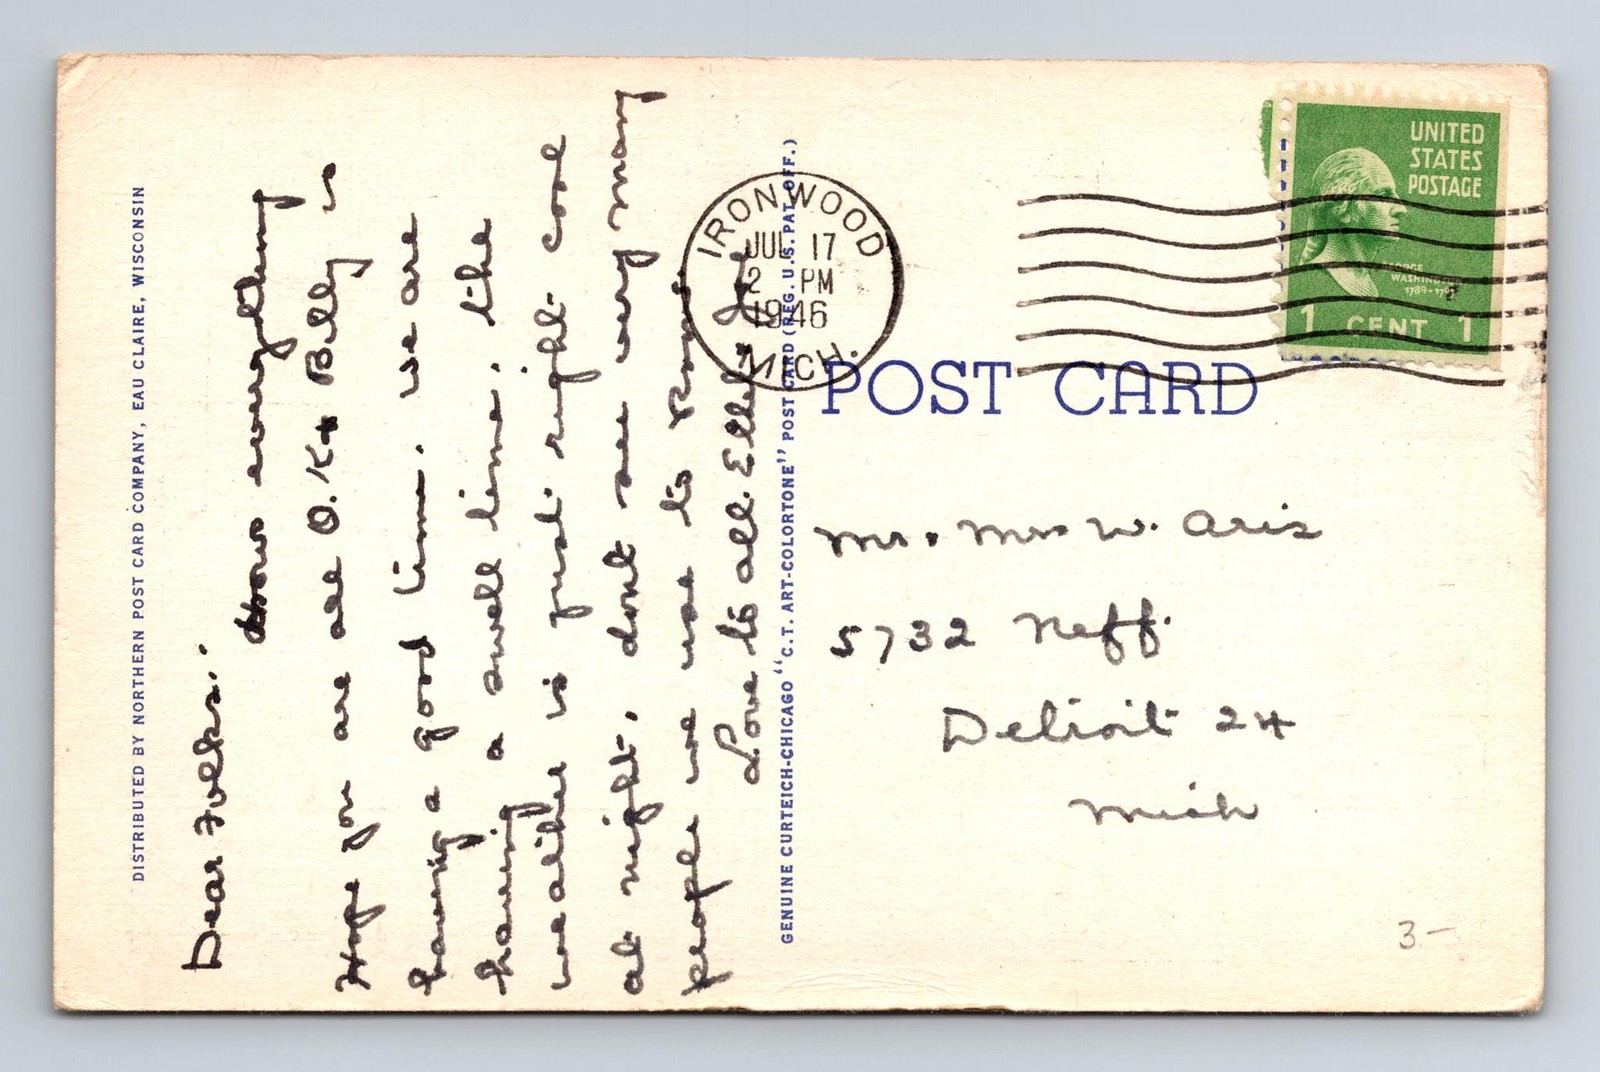 DISTRIBUTED BY NORTHERN POST CARD COMPANY, EAU CLAIRE, WISCONSIN
Dear Folks:
How everything
Hope you are all O.K + Billy is
having a good time. we are
having a swell time. the
weather is just right cool
at night. dont see very many
people we use to
Love to all. Ella
GENUINE CURTEICH-CHICAGO "C.T. ART-COLORTONE" POST CARD (REG. U.S. PAT. OFF.)
IRONWOOD
JUL 17
2 PM
1946
MICH.
UNITED
STATES
POSTAGE
GEORGE
WASHINGTON
1 CENT 1
POST CARD
Mr. Mrs W. Aris
5732 Neff.
Detroit 24
Mich
3-